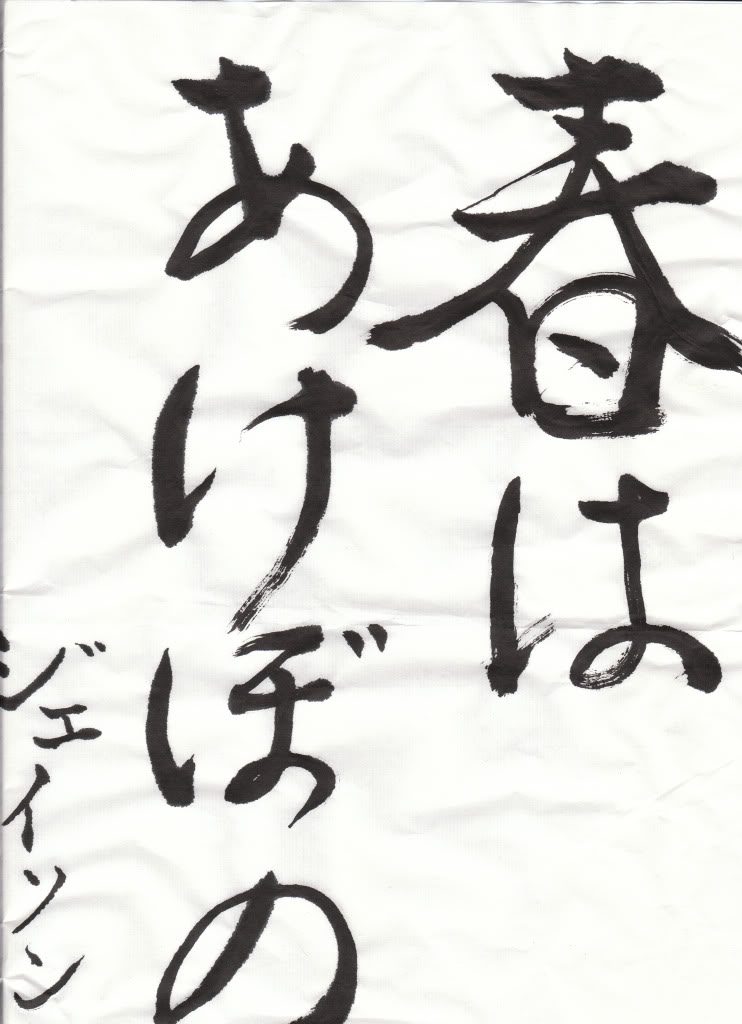 春は
あけぼの
ジェイソン